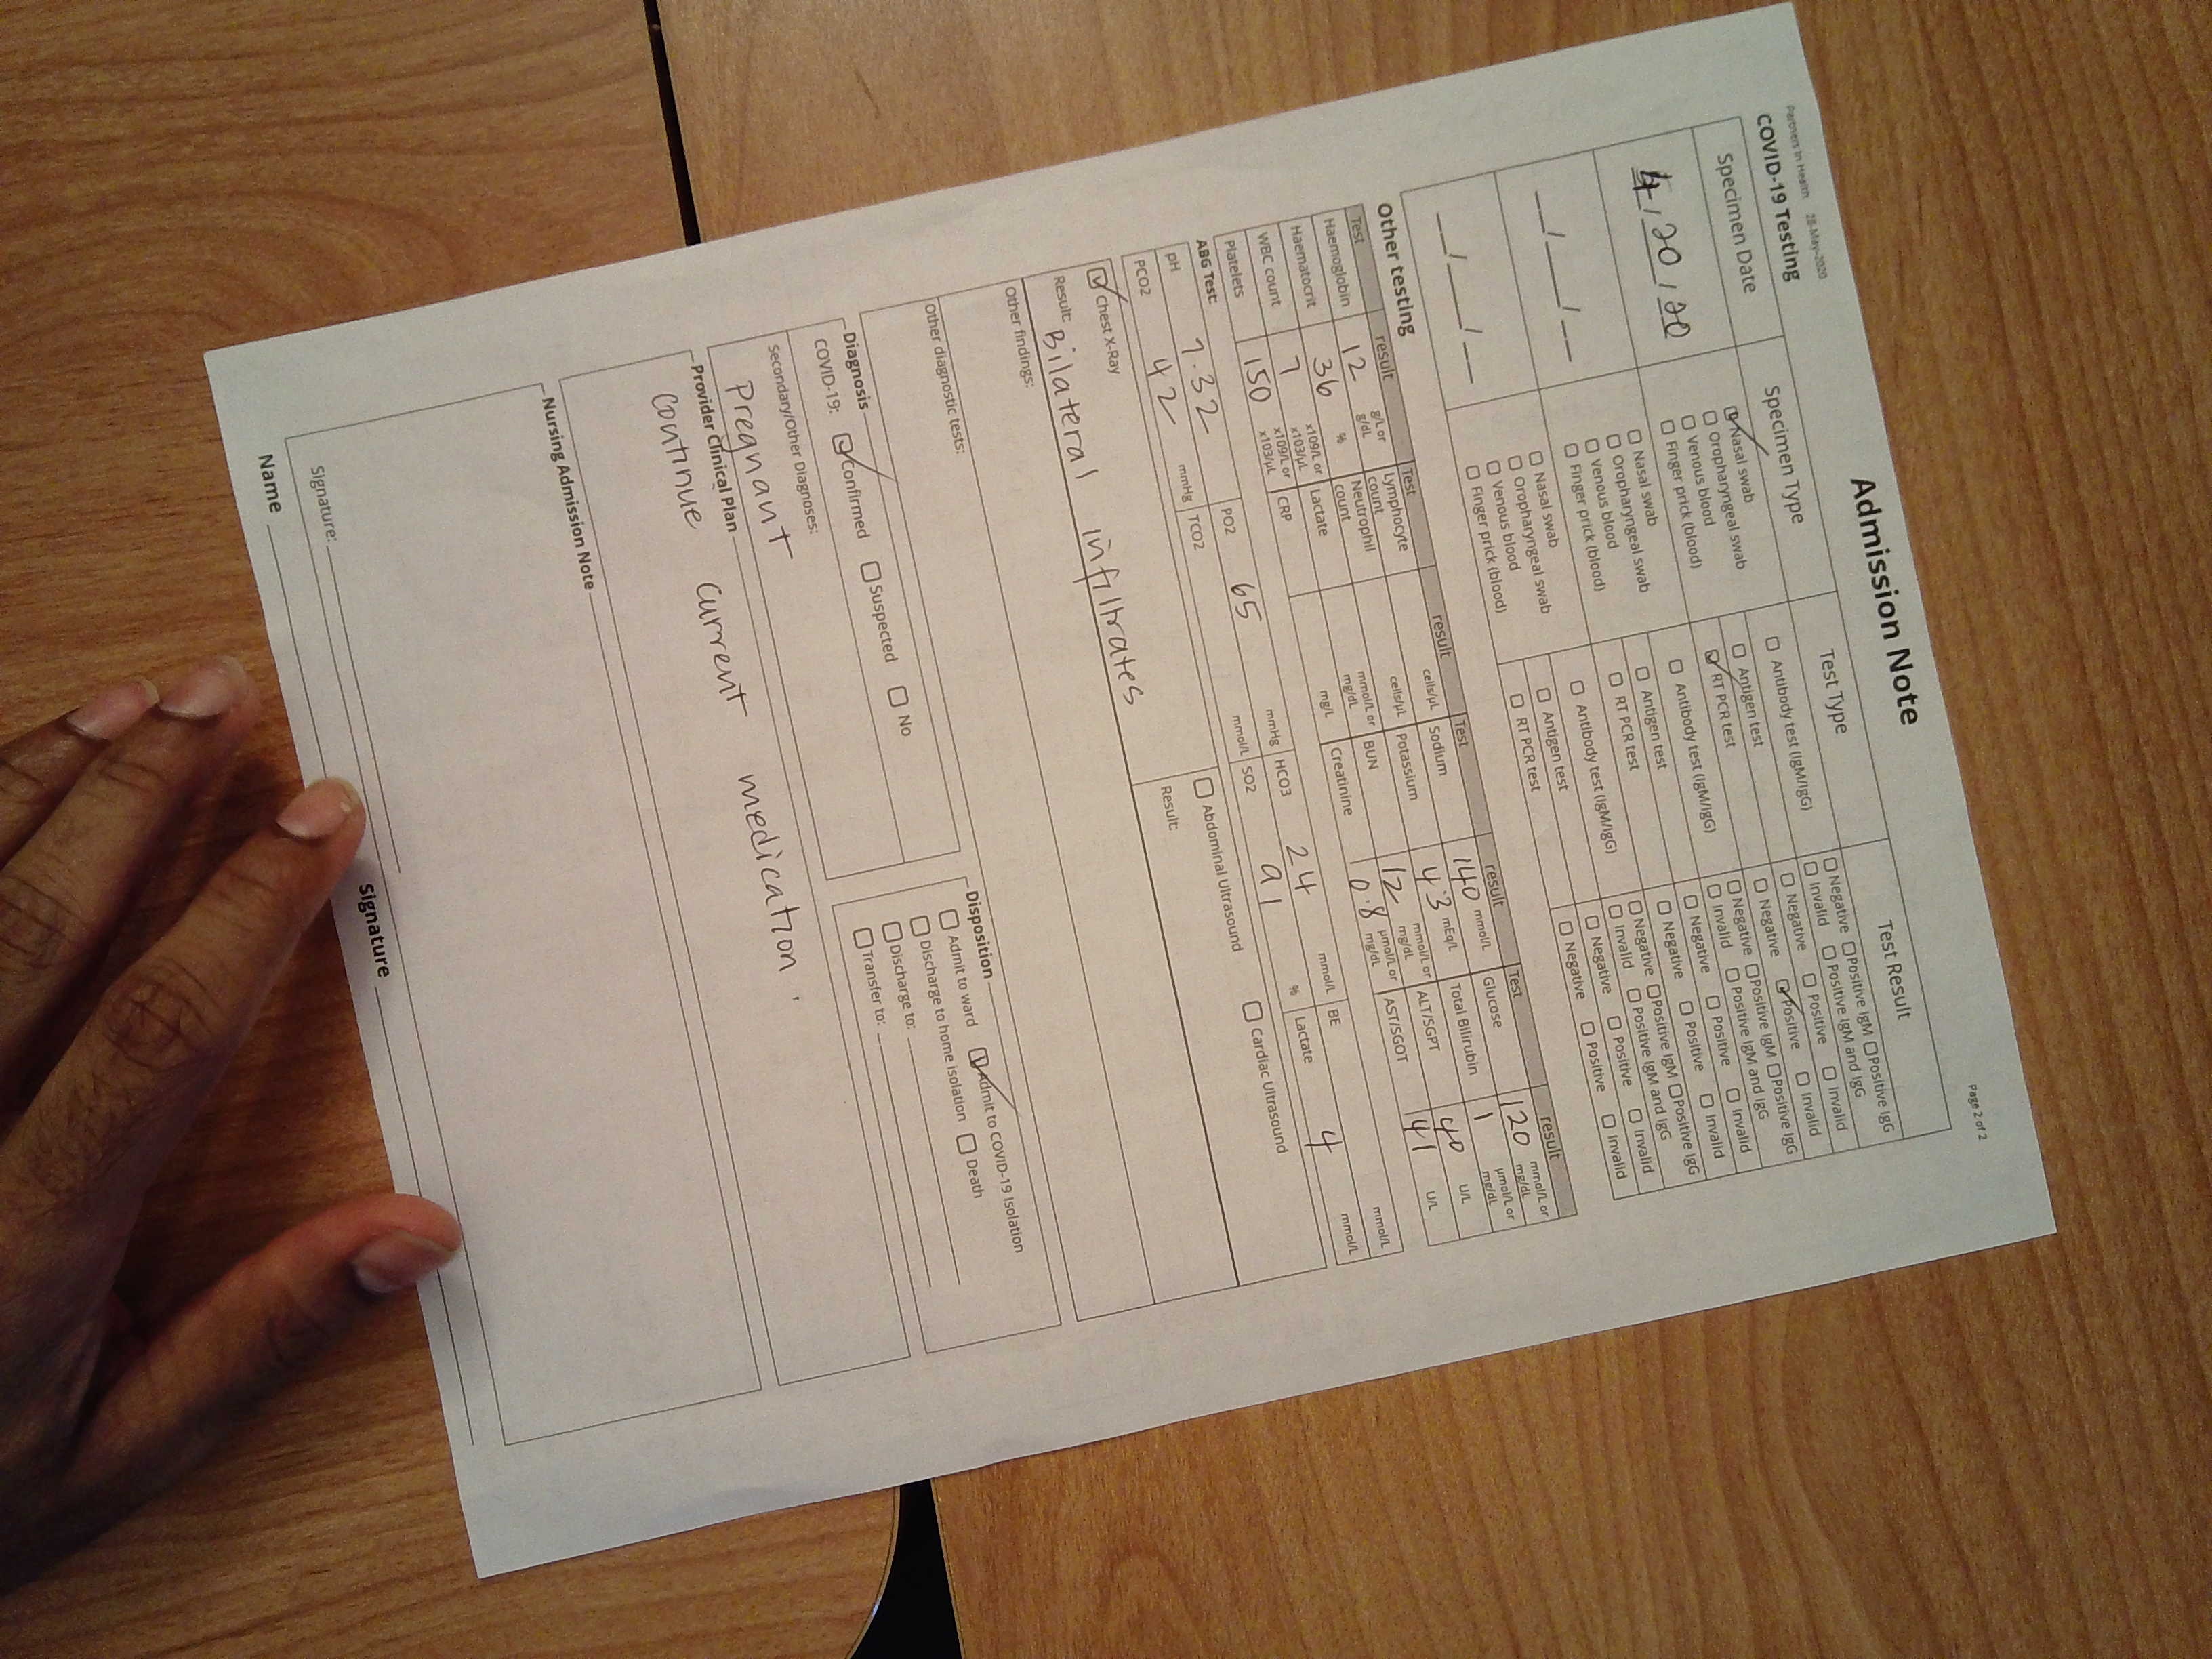 Partners In Health 28-May-2020
Page 2 of 2
Admission Note
COVID-19 Testing
Specimen Date Specimen Type Test Type Test Result
4/20/20
Nasal swab
Oropharyngeal swab
Venous blood
Finger prick (blood)
Antibody test (IgM/IgG)
Antigen test
RT PCR test
Negative Positive IgM Positive IgG
Invalid Positive IgM and IgG
Negative Positive Invalid
Negative Positive Invalid
__/__/__
Nasal swab
Oropharyngeal swab
Venous blood
Finger prick (blood)
Antibody test (IgM/IgG)
Antigen test
RT PCR test
Negative Positive IgM Positive IgG
Invalid Positive IgM and IgG
Negative Positive Invalid
Negative Positive Invalid
__/__/__
Nasal swab
Oropharyngeal swab
Venous blood
Finger prick (blood)
Antibody test (IgM/IgG)
Antigen test
RT PCR test
Negative Positive IgM Positive IgG
Invalid Positive IgM and IgG
Negative Positive Invalid
Negative Positive Invalid
Other testing
Test result Test result Test result Test result
Haemoglobin 12 g/L or g/dL
Lymphocyte count cells/µL
Sodium 140 mmol/L
Glucose 120 mmol/L or mg/dL
Haematocrit 36 %
Neutrophil count cells/µL
Potassium 4.3 mEq/L
Total Bilirubin 1 µmol/L or mg/dL
WBC count 7 x109/L or x103/µL
Lactate mmol/L or mg/dL
BUN 12 mmol/L or mg/dL
ALT/SGPT 40 U/L
Platelets 150 x109/L or x103/µL
CRP mg/L
Creatinine 0.8 µmol/L or mg/dL
AST/SGOT 41 U/L
ABG Test:
pH 7.32 PO2 65 mmHg HCO3 24 mmol/L BE mmol/L
PCO2 42 mmHg TCO2 mmol/L SO2 91 % Lactate 4 mmol/L
Chest X-Ray Abdominal Ultrasound Cardiac Ultrasound
Result: Bilateral infiltrates Result:
Other findings:
Other diagnostic tests:
Diagnosis
COVID-19: Confirmed Suspected No
Secondary/Other Diagnoses:
Pregnant
Disposition
Admit to ward Admit to COVID-19 Isolation
Discharge to home isolation Death
Discharge to:
Transfer to:
Provider Clinical Plan
continue current medication.
Nursing Admission Note
Signature:
Name Signature